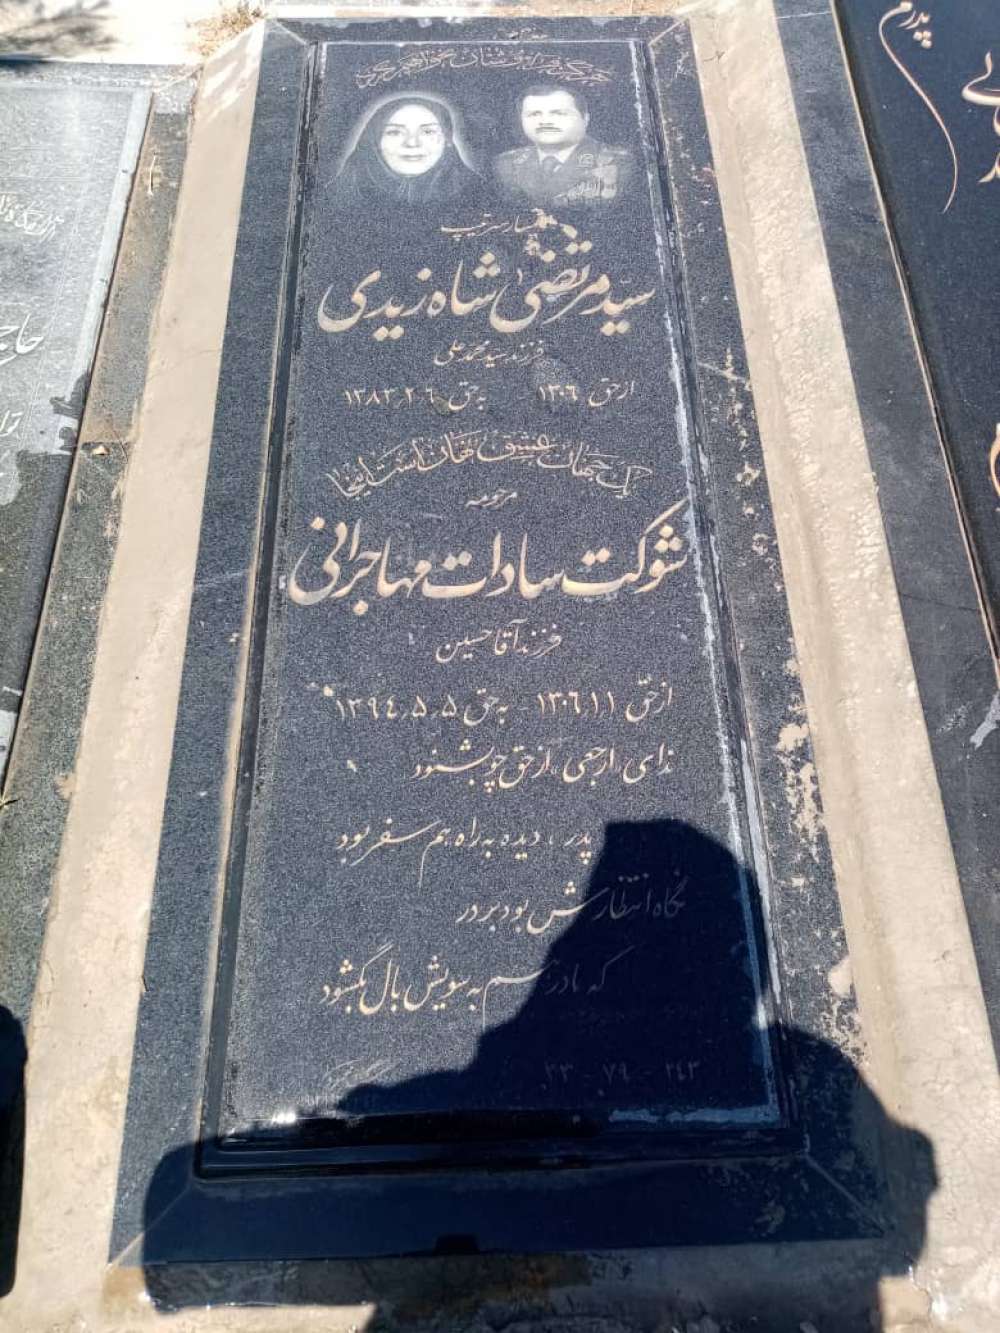 تیمسار سرتیپ
سید مرتضی شاه زیدی
فرزند سید محمد علی
از حق ۱۳۰۶ به حق ۱۳۸۳٫۲٫۶
یک جهان عشق نهان است اینجا
مرحومه
شوکت سادات مهاجرانی
فرزند آقا حسین
از حق ۱۳۰۶٫۱۱ - به حق ۱۳۹۴٫۵٫۵
ندای «ارجعی» از حق چو بشنود
پدر، دیده به راه هم سفر بود
نگاه انتظارش بود بر در
که مادر هم به سویش بال بگشود
۲۴۳ - ۷۹ - ۳۳
پدرم